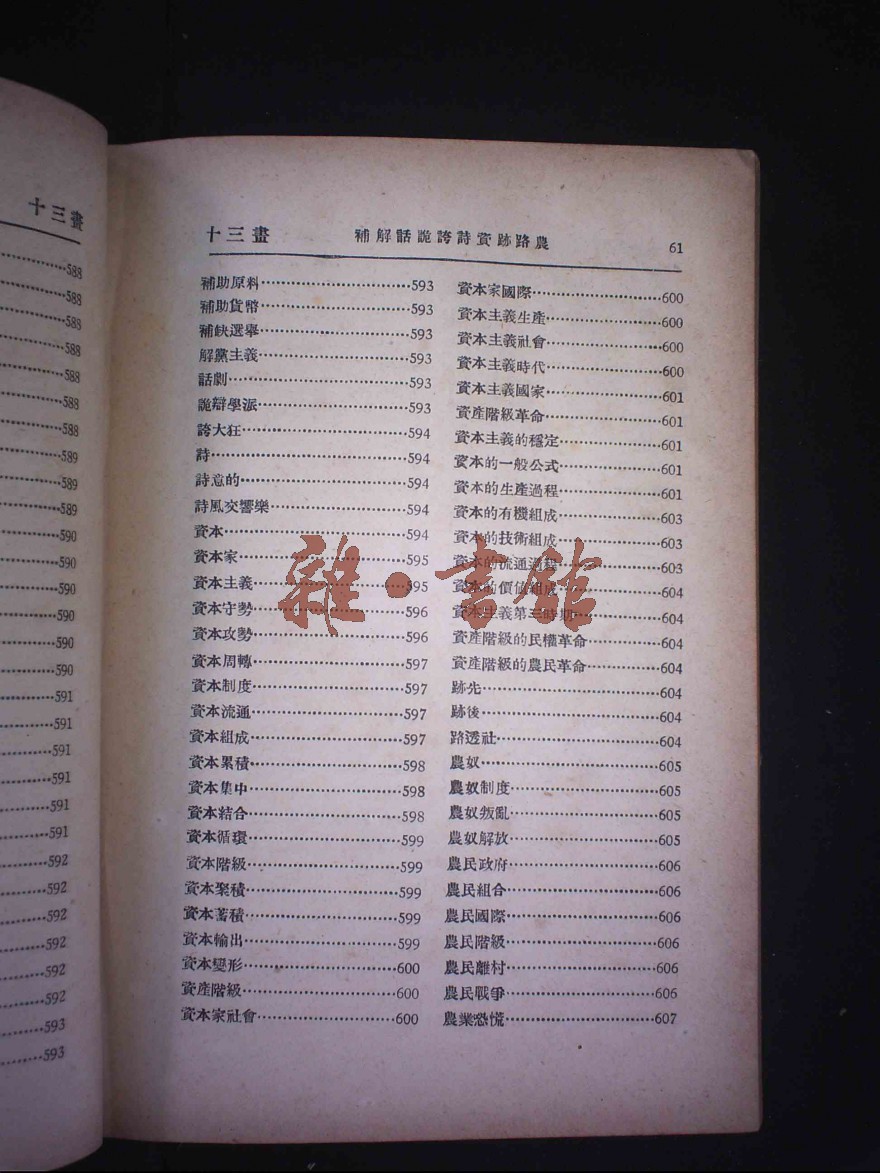 十三畫
588
588
588
588
588
588
588
589
589
589
590
590
590
590
590
590
591
591
591
591
591
591
592
592
592
592
592
592
593
593
十三畫 補解話詭誇詩資跡路農 61
補助原料 593
補助貨幣 593
補缺選舉 593
解黨主義 593
話劇 593
詭辯學派 593
誇大狂 594
詩 594
詩意的 594
詩風交響樂 594
資本 594
資本家 595
資本主義 595
資本守勢 596
資本攻勢 596
資本周轉 597
資本制度 597
資本流通 597
資本組成 597
資本累積 598
資本集中 598
資本結合 598
資本循環 599
資本階級 599
資本聚積 599
資本蓄積 599
資本輸出 599
資本變形 600
資產階級 600
資本家社會 600
資本家國際 600
資本主義生產 600
資本主義社會 600
資本主義時代 600
資本主義國家 601
資產階級革命 601
資本主義的穩定 601
資本的一般公式 601
資本的生產過程 601
資本的有機組成 603
資本的技術組成 603
資本的流通過程 603
資本的價值組成 604
資本主義第三時期 604
資產階級的民權革命 604
資產階級的農民革命 604
跡先 604
跡後 604
路透社 604
農奴 605
農奴制度 605
農奴叛亂 605
農奴解放 605
農民政府 606
農民組合 606
農民國際 606
農民階級 606
農民離村 606
農民戰爭 606
農業恐慌 607
雜·書館